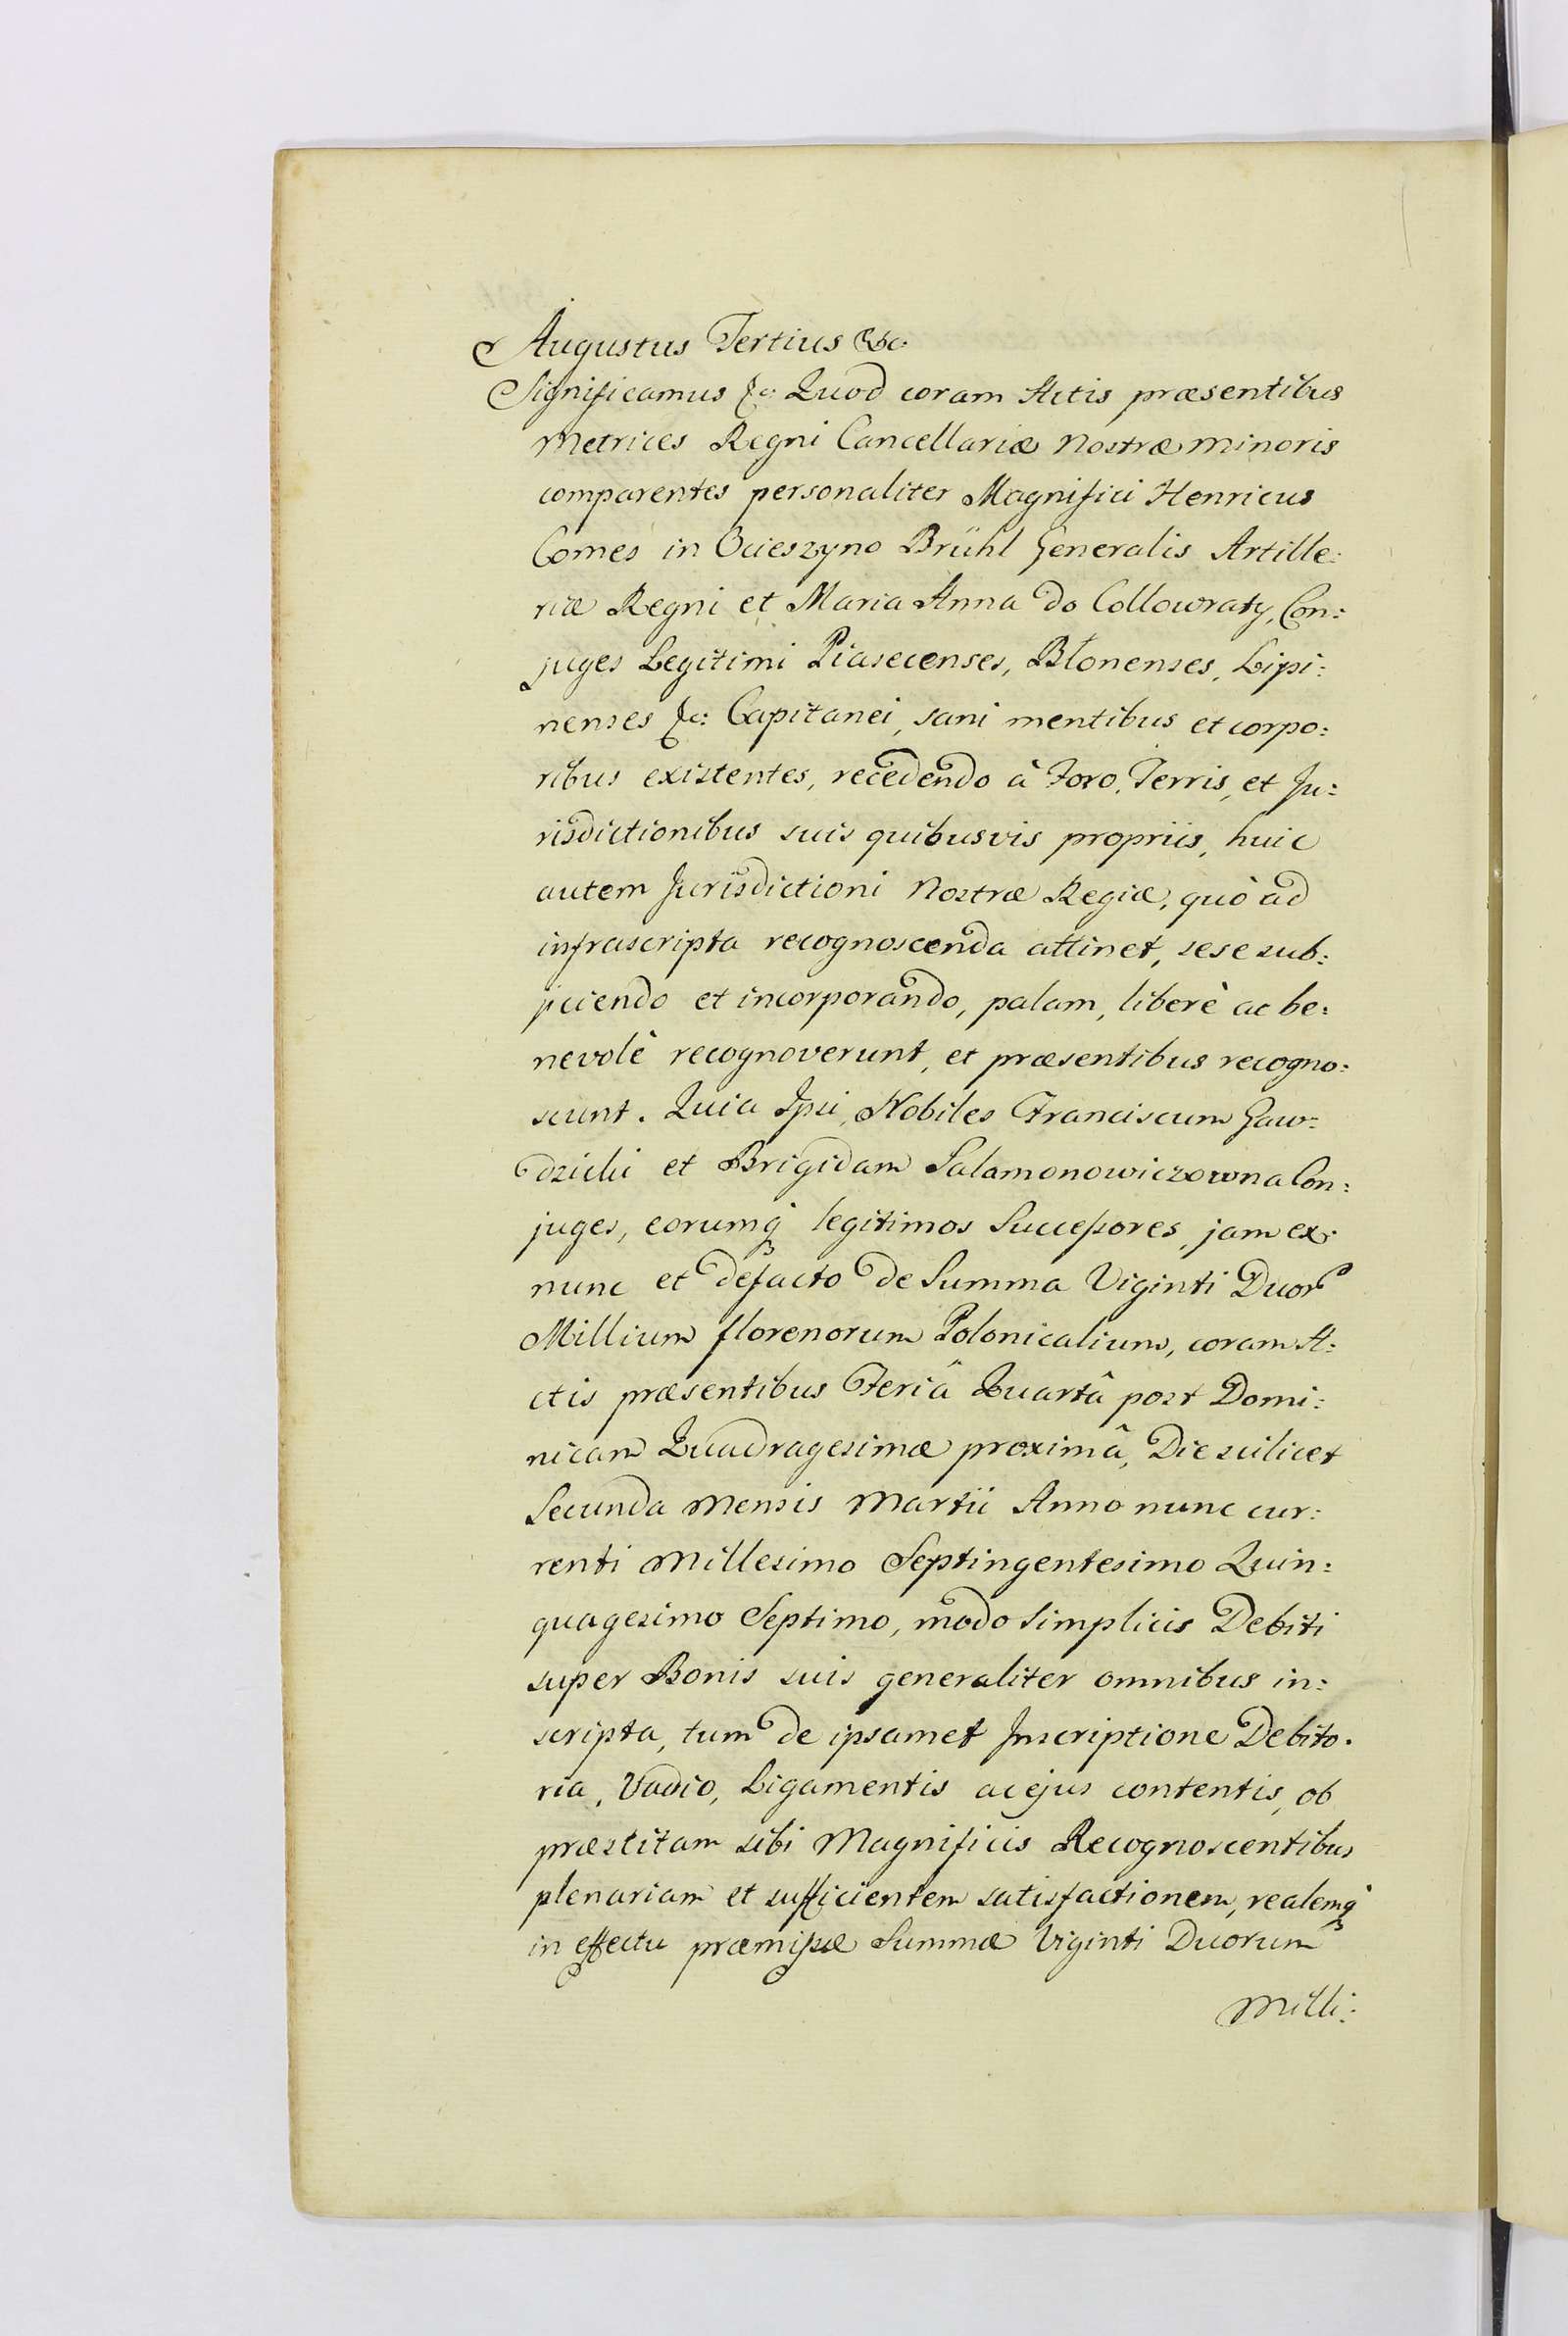 Augustus Tertius &c.
Significamus &c: Quod coram Actis præsentibus
Metrices Regni Cancellariæ Nostræ minoris
comparentes personaliter Magnifici Henricus
Comes in Ocieszyno Brühl Generalis Artille:
riæ Regni et Maria Anna do Collowraty, Con:
juges Legitimi Piasecenses, Blonenses, Lipi:
nenses &c: Capitanei, sani mentibus et corpo:
ribus existentes, recedendo à Foro, Terris, et Ju:
risdictionibus suis quibusvis propriis, huic
autem Jurisdictioni Nostræ Regiæ, quò ad
infrascripta recognoscenda attinet, sese sub:
jiciendo et incorporando, palam, liberè ac be:
nevolè recognoverunt, et præsentibus recogno:
scunt. Quia Ipsi, Nobiles Franciscum Gaw:
dzicki et Brigidam Salamonowiczowna Con:
juges, eorumq́ legitimos Successores, jam ex
nunc et defacto de Summa Viginti Duor̃
Millium florenorum Polonicalium, coram A:
ctis præsentibus Feriâ Quartâ post Domi:
nicam Quadragesimæ proximâ, Die scilicet
Secunda Mensis Martii Anno nunc cur:
renti Millesimo Septingentesimo Quin:
quagesimo Septimo, modo Simplicis Debiti
super Bonis suis generaliter omnibus in:
scripta, tum de ipsamet Inscriptione Debito.
ria, Vadio, Ligamentis ac ejus contentis, ob
præstitam sibi Magnificis Recognoscentibus
plenariam et sufficientem satisfactionem, realemq́
in effectu præmissæ Summæ Viginti Duorum
Milli: